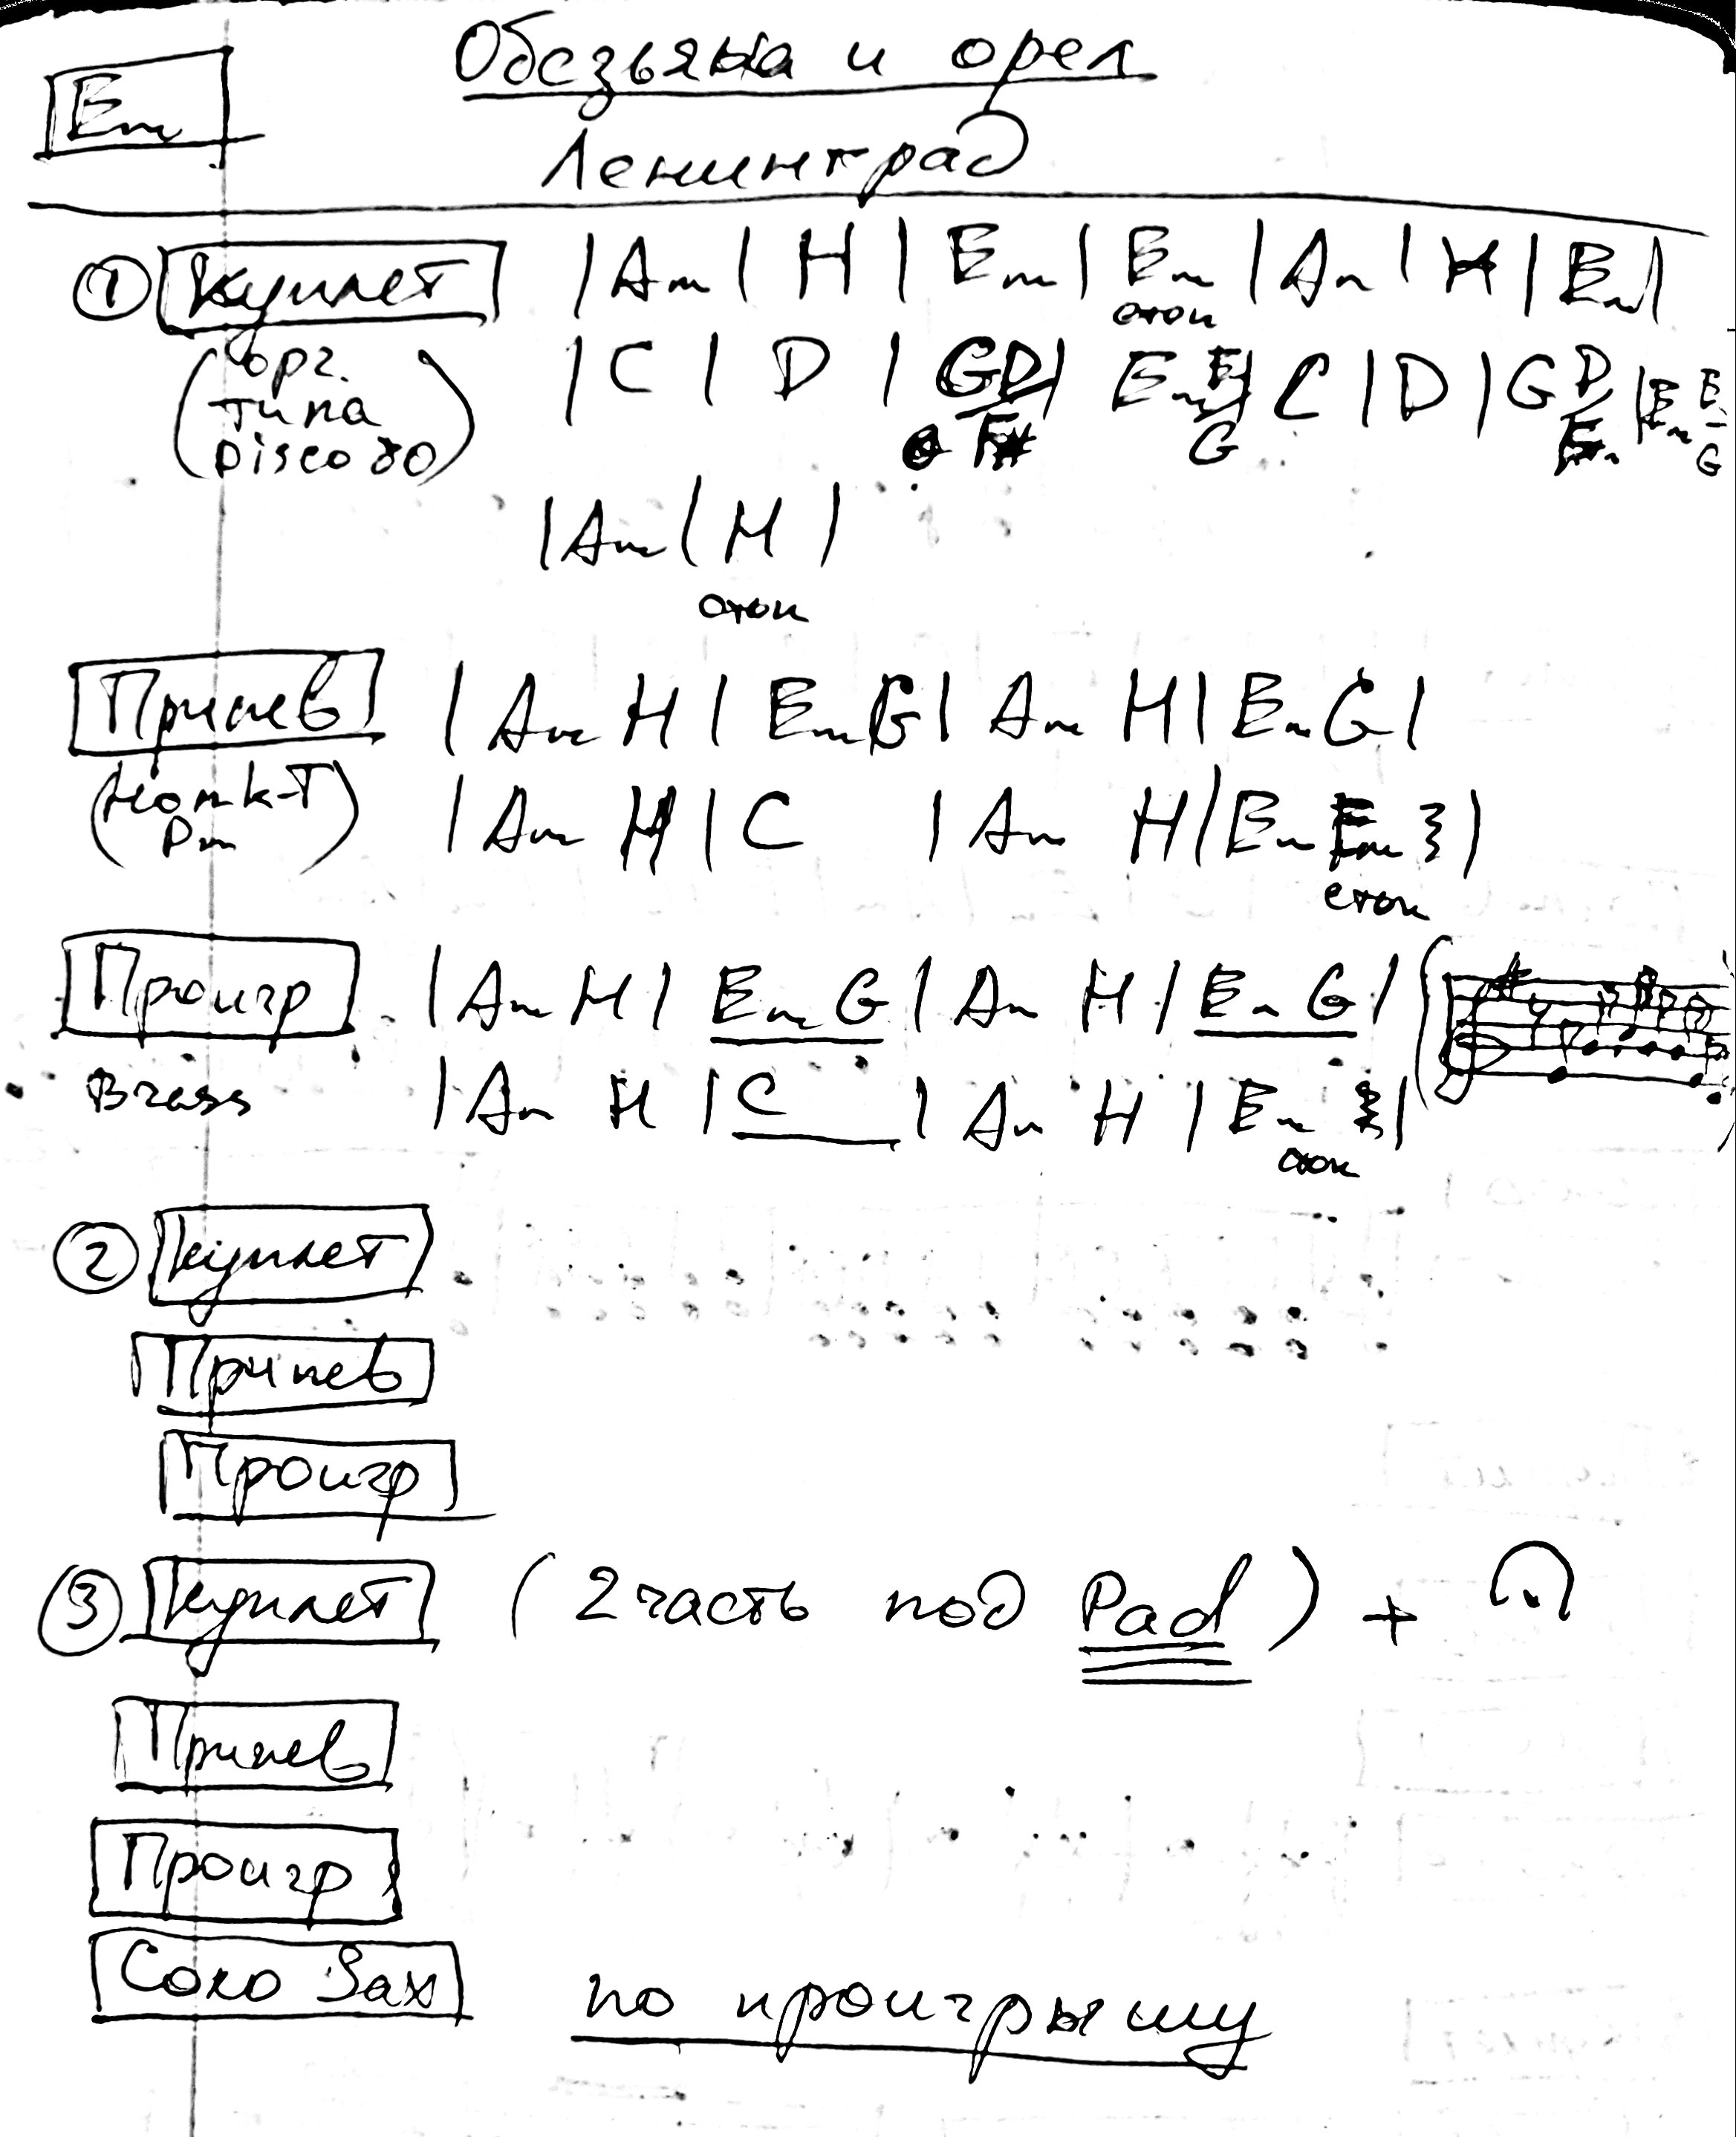 Обезьяна и орел
Em
Ленинград
① Куплет | Am | H | Em | Em | Am | H | Em |
стоп
(орг. типа Disco 80)
| C | D | G D/F# | Em Em/G | C | D | G D/F# | Em Em/G
| Am | H |
стоп
Припев | Am H | Em G | Am H | Em G |
Dm
| Am H | C | Am H | Em Em 𝄽 |
стоп
Проигр | Am H | Em G | Am H | Em G | (
Brass | Am H | C | Am H | Em 𝄽 |
стоп
② Куплет
Припев
Проигр
③ Куплет (2 часть под Pad) + 𝄐
Припев
Проигр
Соло Sax по проигрышу